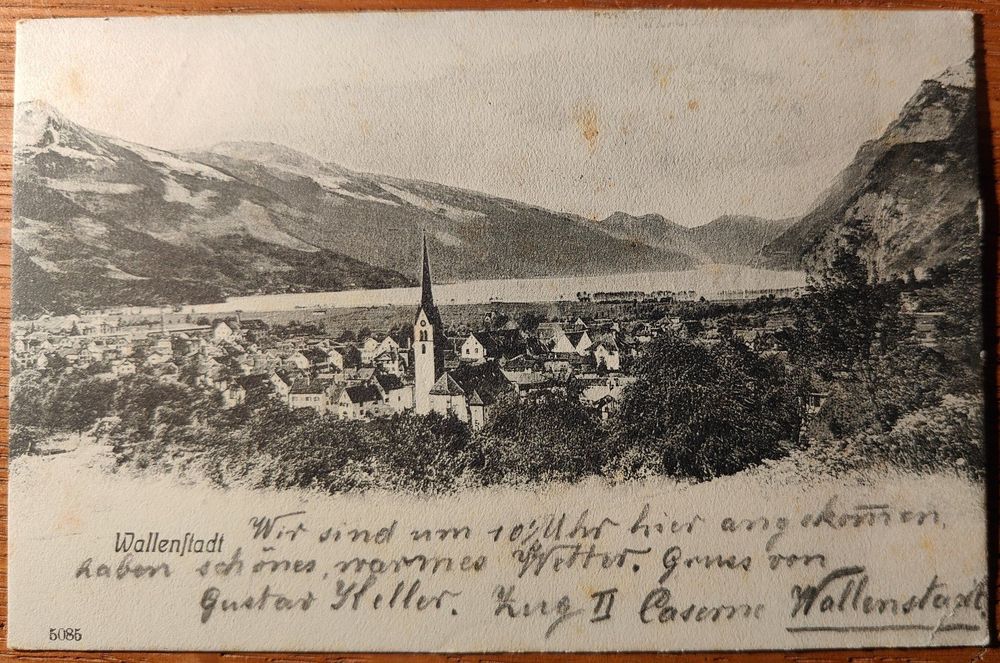 Wallenstadt
Wir sind um 10½ Uhr hier angekom̅en,
haben schönes, warmes Wetter. Gruss von
Gustav Keller. Zug II Caserne Wallenstadt.
5085